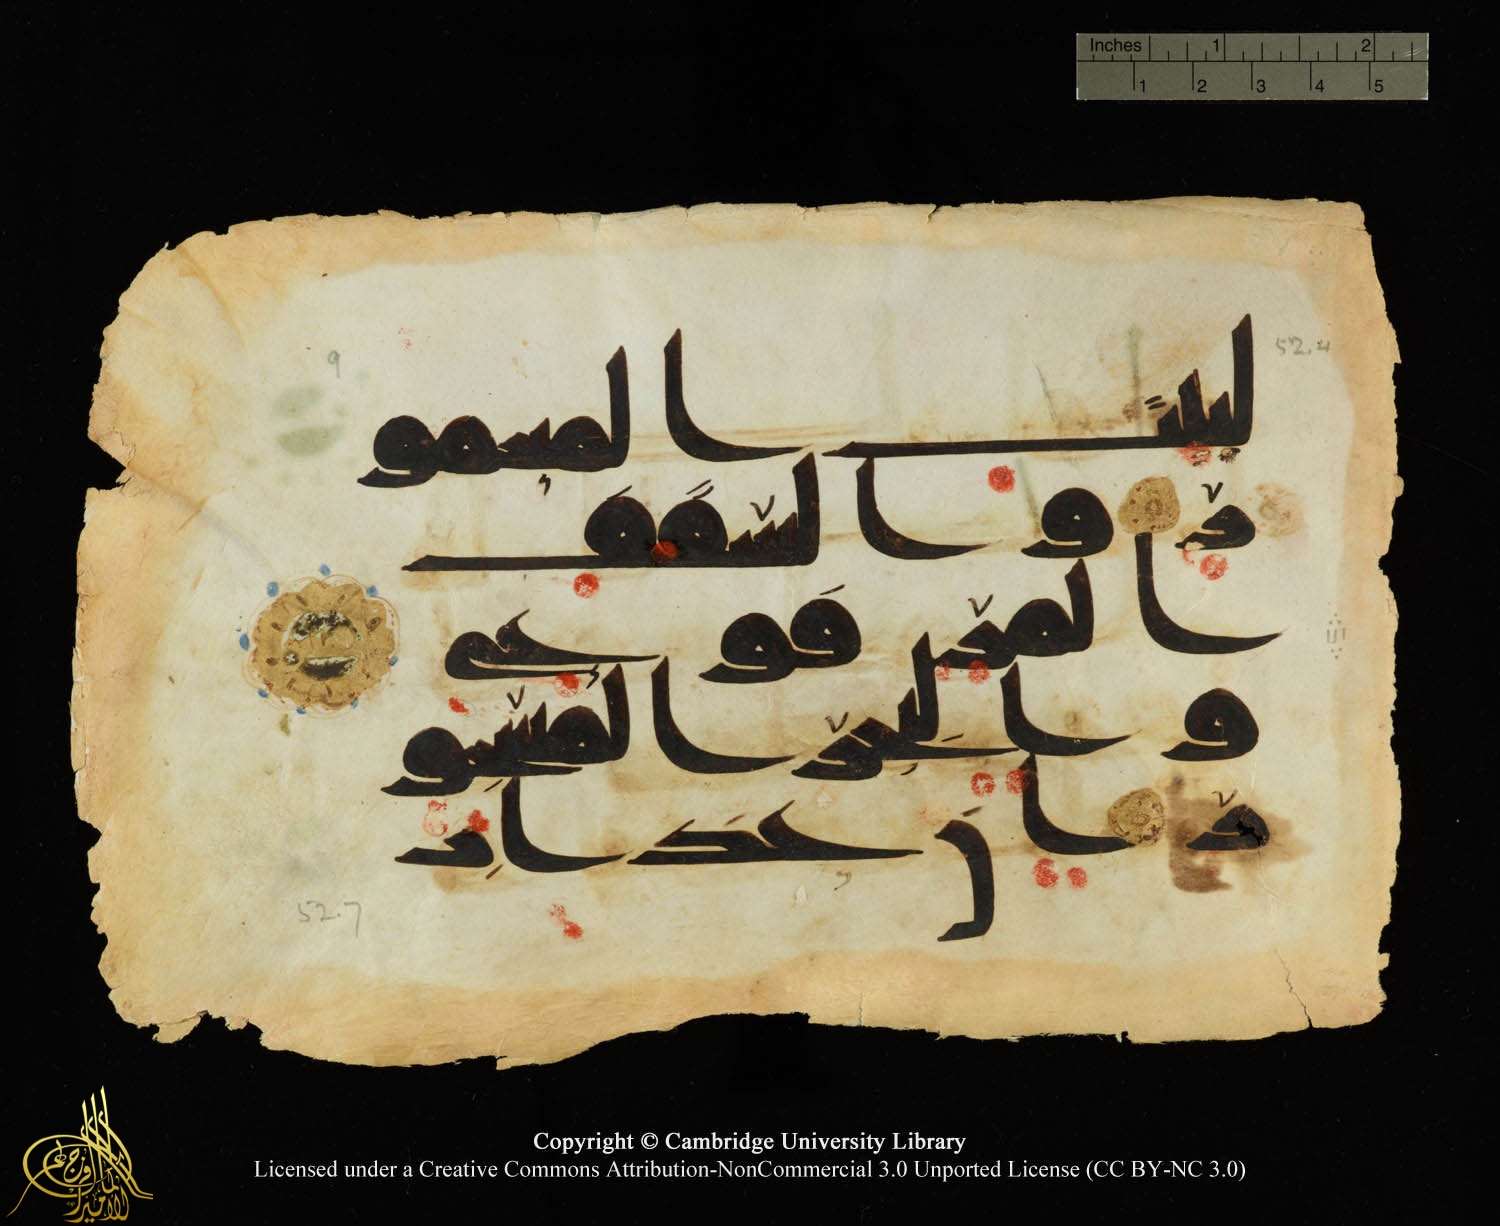 Inches 1 2
1 2 3 4 5
52.4
9
لبيت المعمو
ر والسقف
المرفوع
والبحر المسجو
ر ان عذاب
52.7
Copyright © Cambridge University Library
Licensed under a Creative Commons Attribution-NonCommercial 3.0 Unported License (CC BY-NC 3.0)